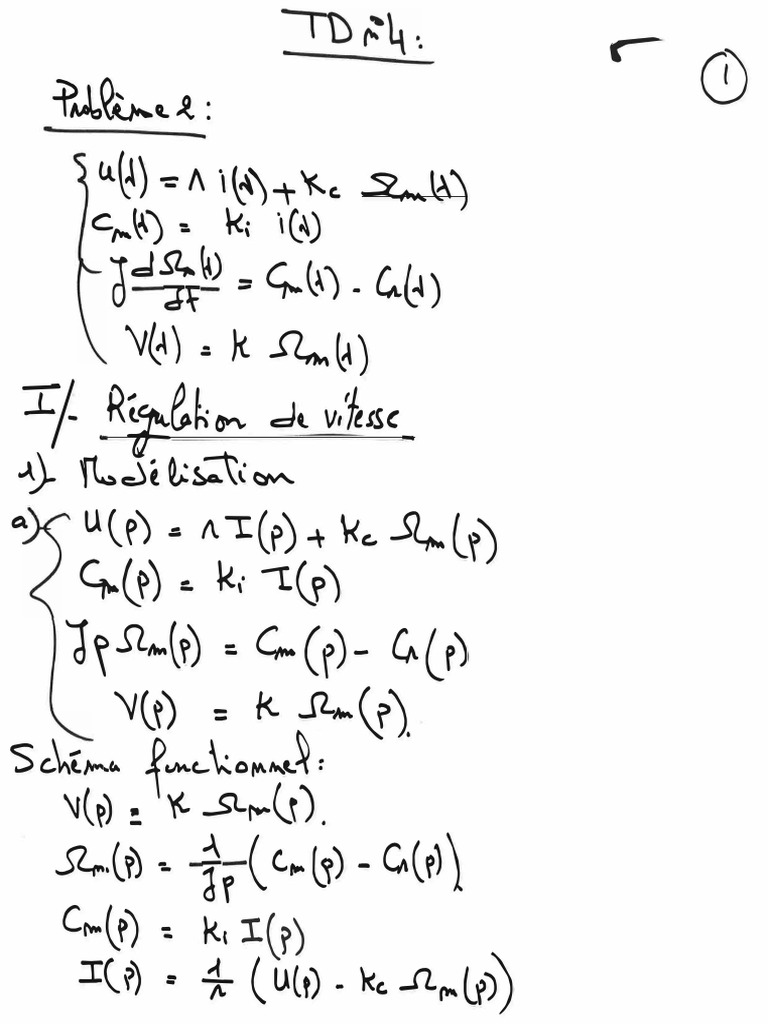 TD n°4:
1
Problème 2:
u(t) = r i(t) + Kc Ωm(t)
Cm(t) = Ki i(t)
J dΩm(t)/dt = Cm(t) - Cr(t)
V(t) = K Ωm(t)
I/- Régulation de vitesse
1)- Modélisation
a)- U(p) = r I(p) + Kc Ωm(p)
Cm(p) = Ki I(p)
Jp Ωm(p) = Cm(p) - Cr(p)
V(p) = K Ωm(p).
Schéma functionnel:
V(p) = K Ωm(p).
Ωm(p) = 1/Jp (Cm(p) - Cr(p))
Cm(p) = Ki I(p)
I(p) = 1/r (U(p) - Kc Ωm(p))